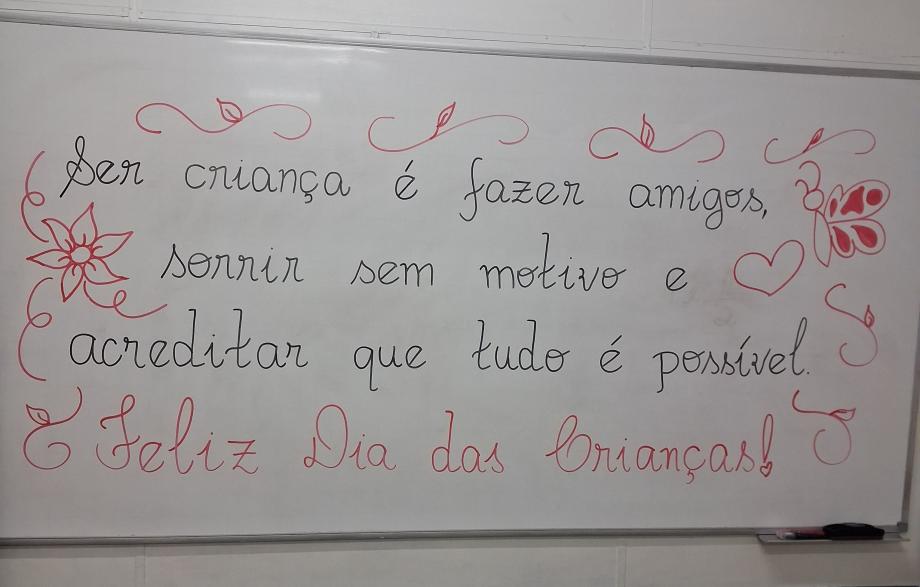 Ser criança é fazer amigos,
sorrir sem motivo e
acreditar que tudo é possível.
Feliz Dia das Crianças!